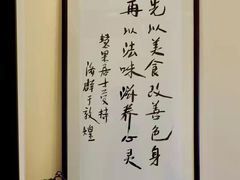 先以美食改善色身
再以法味滋养心灵
慧果居士受持
海群于敦煌